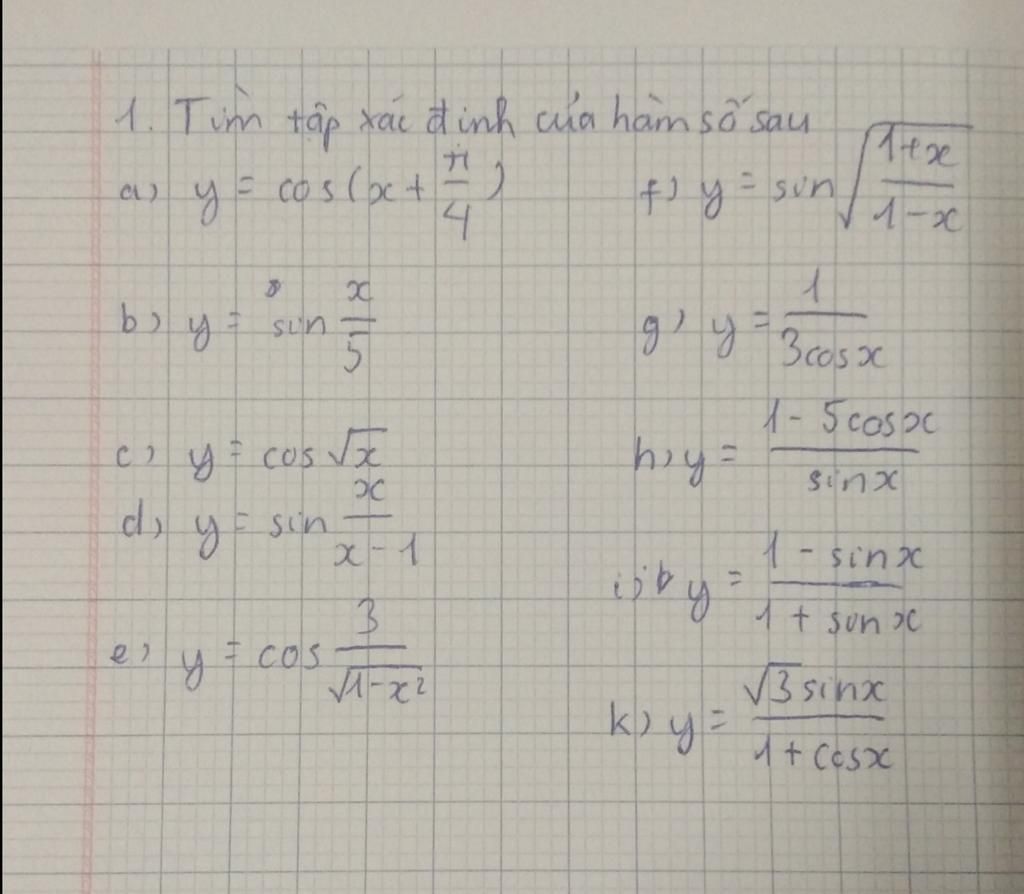 1. Tìm tập xác định của hàm số sau
a) y = cos(x + π/4)
b) y = sin x/5
c) y = cos √x
d) y = sin x/(x - 1)
e) y = cos 3/√(1-x²)
f) y = sin √((1+x)/(1-x))
g) y = 1/(3cosx)
h) y = (1 - 5cosx)/(sinx)
i) y = (1 - sinx)/(1 + sinx)
k) y = (√3 sinx)/(1 + cosx)